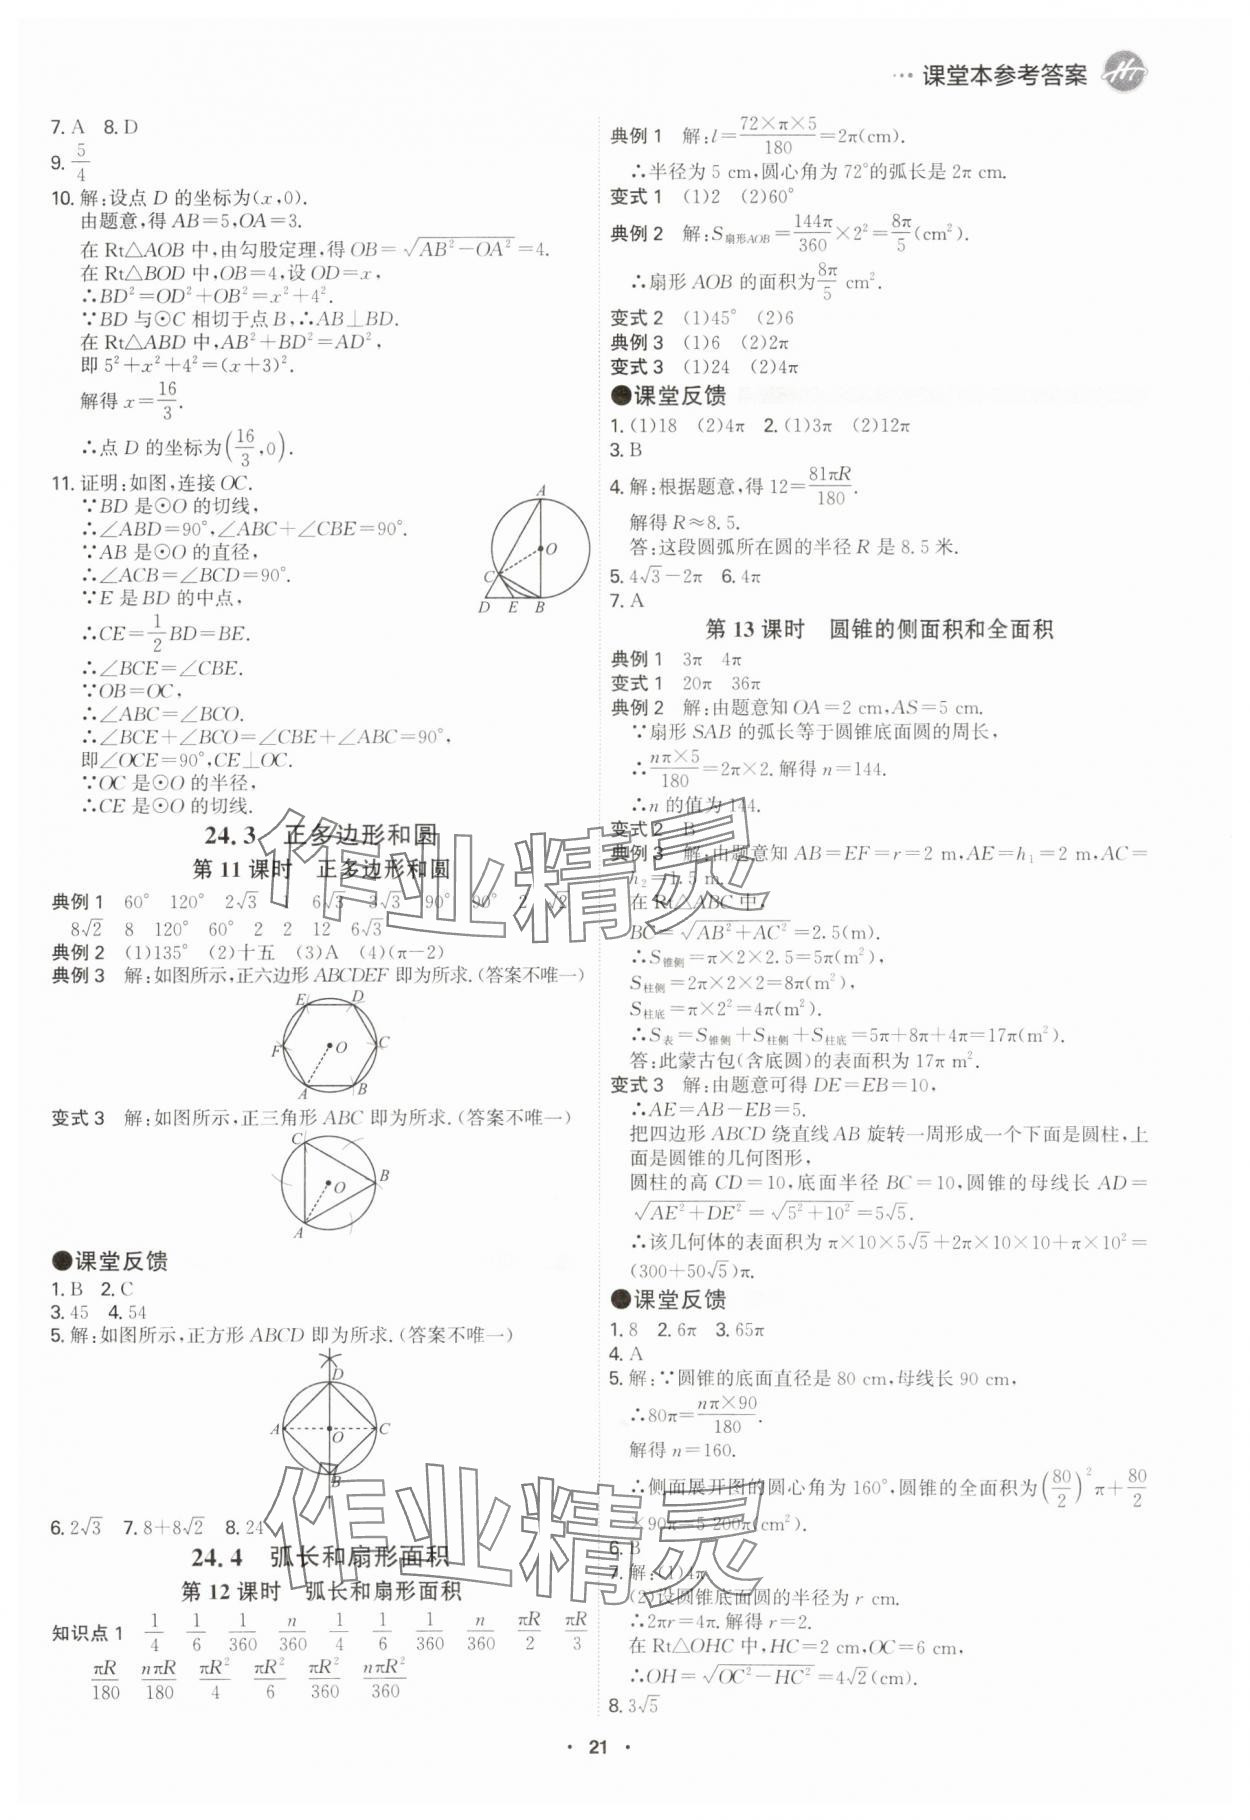 课堂本参考答案
7. A  8. D
9. 5/4
10. 解:设点 D 的坐标为(x,0).
由题意,得 AB=5,OA=3.
在 Rt△AOB 中,由勾股定理,得 OB=√(AB²-OA²)=4.
在 Rt△BOD 中,OB=4,设 OD=x,
∴BD²=OD²+OB²=x²+4².
∵BD 与⊙C 相切于点 B,∴AB⊥BD.
在 Rt△ABD 中,AB²+BD²=AD²,
即 5²+x²+4²=(x+3)².
解得 x=16/3.
∴点 D 的坐标为(16/3,0).
11. 证明:如图,连接 OC.
∵BD 是⊙O 的切线,
∴∠ABD=90°,∠ABC+∠CBE=90°.
∵AB 是⊙O 的直径,
∴∠ACB=∠BCD=90°.
∵E 是 BD 的中点,
∴CE=1/2 BD=BE.
∴∠BCE=∠CBE.
∵OB=OC,
∴∠ABC=∠BCO.
∴∠BCE+∠BCO=∠CBE+∠ABC=90°,
即∠OCE=90°,CE⊥OC.
∵OC 是⊙O 的半径,
∴CE 是⊙O 的切线.
A
O
C
D E B
24.3 正多边形和圆
第 11 课时 正多边形和圆
典例 1 60° 120° 2√3 1 6√3 3√3 90° 90° 2 √2
8√2 8 120° 60° 2 2 12 6√3
典例 2 (1)135° (2)十五 (3)A (4)(π-2)
典例 3 解:如图所示,正六边形 ABCDEF 即为所求.(答案不唯一)
E D
F O C
A B
变式 3 解:如图所示,正三角形 ABC 即为所求.(答案不唯一)
C
O B
A
课堂反馈
1. B  2. C
3. 45  4. 54
5. 解:如图所示,正方形 ABCD 即为所求.(答案不唯一)
D
A O C
B
6. 2√3  7. 8+8√2  8. 24
24.4 弧长和扇形面积
第 12 课时 弧长和扇形面积
知识点 1 1/4 1/6 1/360 n/360 1/4 1/6 1/360 n/360 πR/2 πR/3
πR/180 nπR/180 πR²/4 πR²/6 πR²/360 nπR²/360
典例 1 解:l=(72×π×5)/180=2π(cm).
∴半径为 5 cm,圆心角为 72°的弧长是 2π cm.
变式 1 (1)2 (2)60°
典例 2 解:S扇形AOB=144π/360×2²=8π/5(cm²).
∴扇形 AOB 的面积为8π/5 cm².
变式 2 (1)45° (2)6
典例 3 (1)6 (2)2π
变式 3 (1)24 (2)4π
课堂反馈
1. (1)18 (2)4π  2. (1)3π (2)12π
3. B
4. 解:根据题意,得 12=81πR/180.
解得 R≈8.5.
答:这段圆弧所在圆的半径 R 是 8.5 米.
5. 4√3-2π  6. 4π
7. A
第 13 课时 圆锥的侧面积和全面积
典例 1 3π 4π
变式 1 20π 36π
典例 2 解:由题意知 OA=2 cm,AS=5 cm.
∵扇形 SAB 的弧长等于圆锥底面圆的周长,
∴nπ×5/180=2π×2. 解得 n=144.
∴n 的值为 144.
变式 2 B
典例 3 解:由题意知 AB=EF=r=2 m,AE=h₁=2 m,AC=
h₂=1.5 m.
在 Rt△ABC 中,
BC=√(AB²+AC²)=2.5(m).
∴S锥侧=π×2×2.5=5π(m²),
S柱侧=2π×2×2=8π(m²),
S柱底=π×2²=4π(m²).
∴S表=S锥侧+S柱侧+S柱底=5π+8π+4π=17π(m²).
答:此蒙古包(含底圆)的表面积为 17π m².
变式 3 解:由题意可得 DE=EB=10,
∴AE=AB-EB=5.
把四边形 ABCD 绕直线 AB 旋转一周形成一个下面是圆柱,上
面是圆锥的几何图形,
圆柱的高 CD=10,底面半径 BC=10,圆锥的母线长 AD=
√(AE²+DE²)=√(5²+10²)=5√5.
∴该几何体的表面积为 π×10×5√5+2π×10×10+π×10²=
(300+50√5)π.
课堂反馈
1. 8  2. 6π  3. 65π
4. A
5. 解:∵圆锥的底面直径是 80 cm,母线长 90 cm,
∴80π=nπ×90/180.
解得 n=160.
∴侧面展开图的圆心角为 160°,圆锥的全面积为(80/2)²π+80/2
×90π=5 200π(cm²).
6. B
7. 解:(1)4π
(2)设圆锥底面圆的半径为 r cm.
∴2πr=4π. 解得 r=2.
在 Rt△OHC 中,HC=2 cm,OC=6 cm,
∴OH=√(OC²-HC²)=4√2(cm).
8. 3√5
作业精灵
作业精灵
· 21 ·